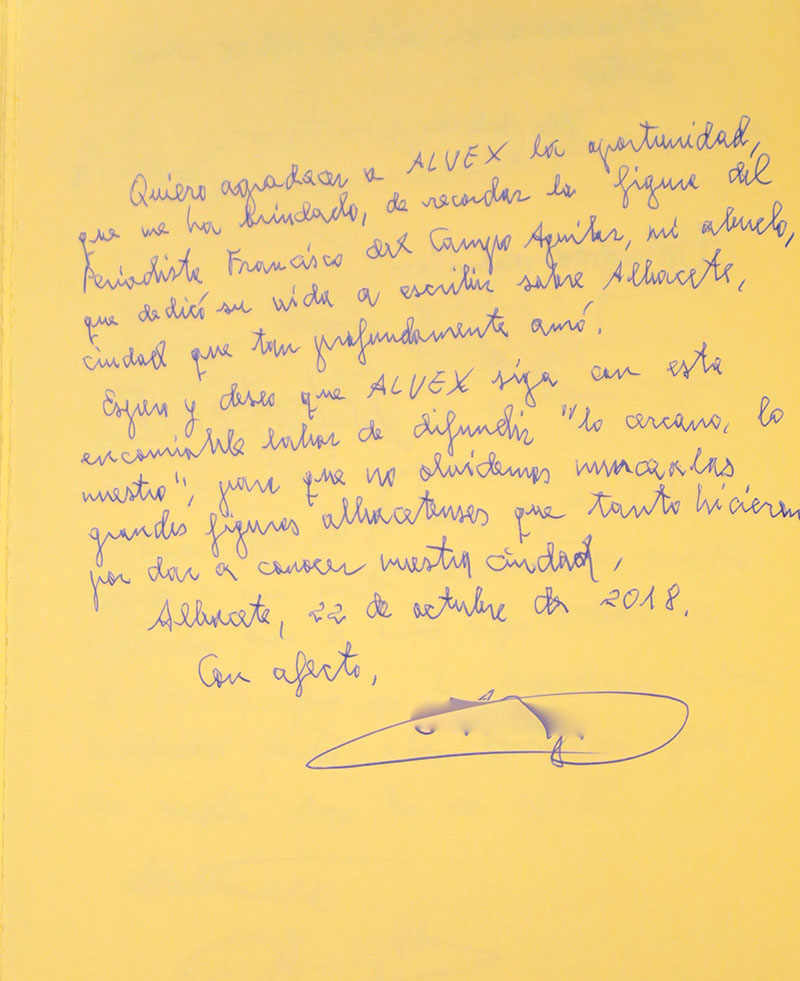 Quiero agradecer a ALVEX la oportunidad,
que me ha brindado, de recordar la figura del
Periodista Francisco del Campo Aguilar, mi abuelo,
que dedicó su vida a escribir sobre Albacete,
ciudad que tan profundamente amó.
Espero y deseo que ALVEX siga con esta
encomiable labor de difundir "lo cercano, lo
nuestro", para que no olvidemos nunca a las
grandes figuras albacetenses que tanto hicieron
por dar a conocer nuestra ciudad,
Albacete, 22 de octubre de 2018.
Con afecto,